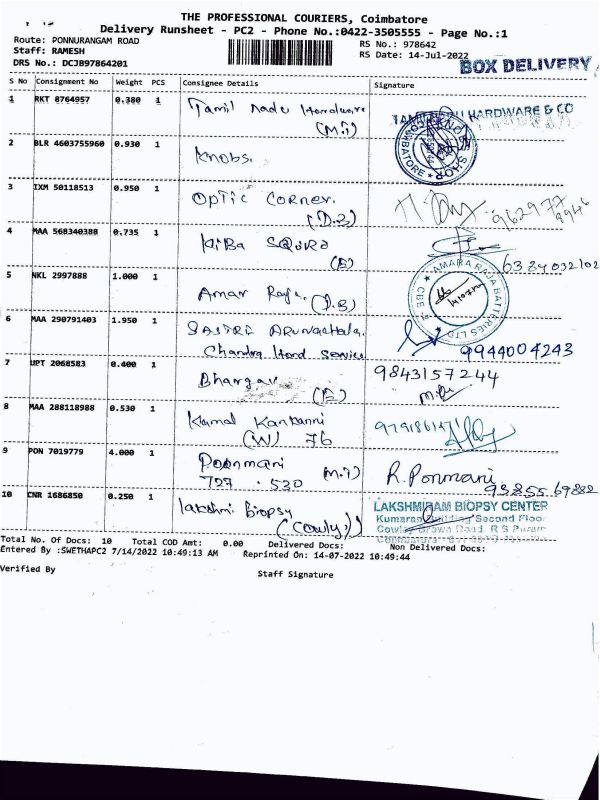 THE PROFESSIONAL COURIERS, Coimbatore
Delivery Runsheet - PC2 - Phone No.:0422-3505555 - Page No.:1
Route: PONNURANGAM ROAD
RS No.: 978642
Staff: RAMESH
RS Date: 14-Jul-2022
DRS No.: DCJB97864201
BOX DELIVERY
S No Consignment No Weight PCS Consignee Details Signature
1 RKT 8764957 0.380 1 Tamil nadu Hardware
(M.T)
HARDWARE & CO
2 BLR 4603755960 0.930 1 Knobs.
3 IXM 50118513 0.950 1 OPTIC CORNER.
(D.B)
4 MAA 568340388 0.735 1
(B)
5 NKL 2997888 1.000 1 Amar Raja. (D.B)
AMARA RAJA BATTERIES LTD
CBE
6 MAA 290791403 1.950 1 SASTRI Arunachala.
Chandra Hond Service
9944004243
7 UPT 2068583 0.400 1 Bhargav
(B)
9843157244
8 MAA 288118988 0.530 1 Kamal
(W) 76
9 PON 7019779 4.000 1 Poonmani (M.T)
727 . 530
R. Ponmani
93855 69882
10 CNR 1686850 0.250 1 lakshmi Biopsy
(Cowly))
LAKSHMIRAM BIOPSY CENTER
Kumaran Building Second Floor
Cowley Brown Road R S Puram
Total No. Of Docs: 10 Total COD Amt: 0.00 Delivered Docs: Non Delivered Docs:
Entered By :SWETHAPC2 7/14/2022 10:49:13 AM Reprinted On: 14-07-2022 10:49:44
Verified By
Staff Signature